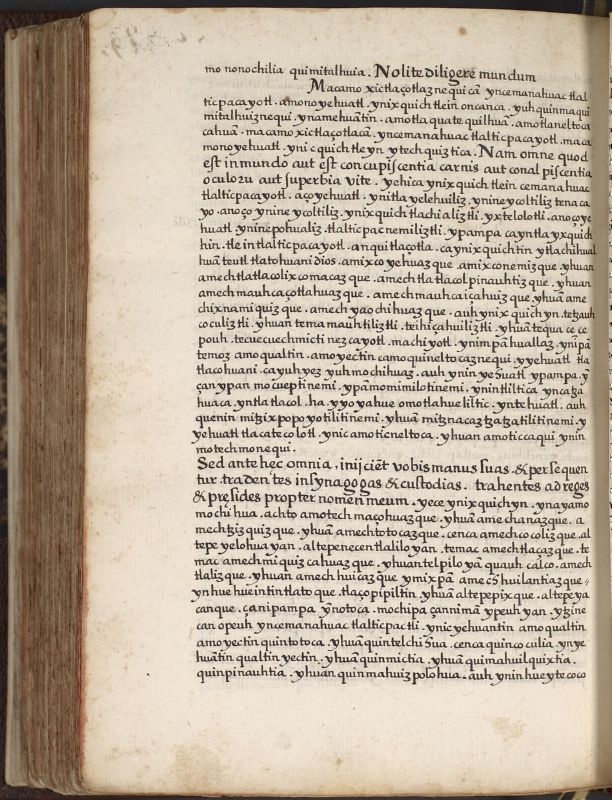 mo nonochilia quimitalhuia. Nolite diligere mundum
Macamo xictlaçotlaznequicā yncemanahuac tlal
ticpacayotl. amono yehuatl. ynixquich tlein oncanca. yuh quinmaqui
mitalhuiznequi. ynamehuātin. amotlaquatequilhuā. amotlaneltoca
cahuā. macamo xictlaçotlacā. yncemanahuac tlalticpacayotl. maca
mono yehuatl. ynicquich tleyn ytech quiztica. Nam omne quod
est inmundo aut est concupiscentia carnis aut conal piscentia
oculozu aut superbia vite. yehica ynixquich tlein cemanahuac
tlalticpacayotl. aço yehuatl. ynitla yelehuiliz. ynineycoltiliz tenaca
yo. anoço ynineycoltiliz. ynixquich tlachializtli. yxtelolotli. anoçoye
huatl. yninepohualiz. tlalticpac nemiliztli. ypampa cayntla yxquich
hin. tle in tlalticpacayotl. anquitlaçotla. ca ynixquichtin ytlachihual
huā teutl tlatohuani dios. amixcoyehuazque. amixconemizque. yhuan
amechtlatlacolixcomacazque. amechtlatlacolpinauhtizque. yhuan
amechmauhcaçotlahuazque. amechmauhcaiçahuizque. yhuā ame
chixnamiquizque. amechyaochihuazque. auh ynixquichyn. tetzauh
coculiztli. yhuan temamauhtiliztli. teihiçahuiliztli. yhuā tequacece
pouh. tecuecuechmicti nezcayotl. machiyotl. ynimpā huallaz. ynipā
temoz amoqualtin. amoyectin camo quineltocaznequi. yyehuatl tla
tlacohuani. ca yuh yez yuh mochihuaz. auh ynin yeSuatl ypampa. y
çan ypan mocueptinemi. ypā momimilotinemi. ynintliltica yncatza
huaca. yntlatlacol. ha. yyoyahue omotlahueliltic. yntehuatl. auh
quenin mitzixpopoyotilitinemi. yhuā mitznacaztzatzatilitinemi. y
yehuatl tlacatecolotl. ynic amo ticneltoca. yhuan amo ticcaqui ynin
motechmonequi.
Sed ante hec omnia, inijciēt vobis manus suas. & persequen
tur. tradentes in synagogas & custodias. trahentes ad reges
& pręsides propter nomen meum. yece ynixquichyn. ynayamo
mochihua. achto amotech maçohuazque. yhuā amechanazque. a
mechtzizquizque. yhuā amechtotocazque. cenca amechcocolizque. al
tepeyelohuayan. altepenecentlaliloyan. temac amechtlaçazque. te
mac amechmiquizcahuazque. yhuan telpiloyā quauhcalco. amech
tlalizque. yhuan amechhuicazque ymixpā amecShuilantiazque
yn huehueintin tlatoque. tlaçopipiltin. yhuā altepepixque. altepeya
canque. çanipampa ynotoca. mochipa çannimā ypeuhyan. ytzine
can opeuh yncemanahuac tlalticpactli. ynic yehuantin amoqualtin
amoyectin quintotoca. yhuā quintelchiSua. cenca quincoculia. ynye
huātin qualtin yectin. yhuā quinmictia. yhuā quimahuilquixtia.
quinpinauhtia. yhuan quinmahuizpolohua. auh ynin hueytecoco